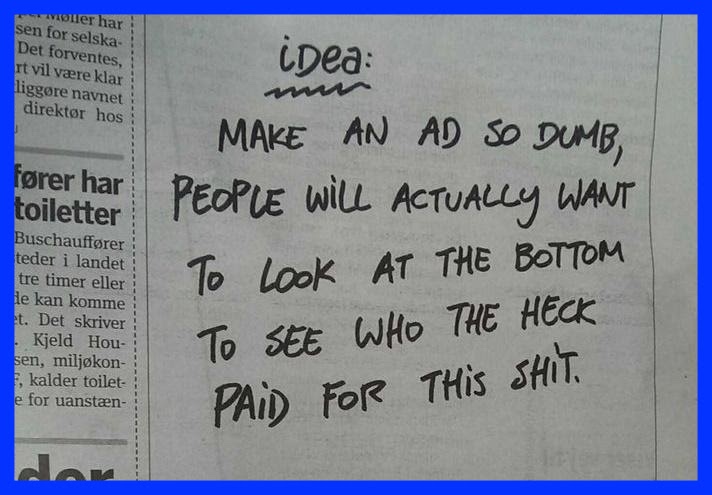 Møller har
sen for selska-
Det forventes,
rt vil være klar
liggøre navnet
direktør hos
fører har
toiletter
Buschauffører
teder i landet
tre timer eller
de kan komme
et. Det skriver
. Kjeld Hou-
sen, miljøkon-
, kalder toilet-
e for uanstæn-
iDea:
MAKE AN AD SO DUMB,
PEOPLE WiLL ACTUALLY WANT
To LOOK AT THE BOTTOM
To SEE WHO THE HECK
PAiD FOR THiS SHiT.